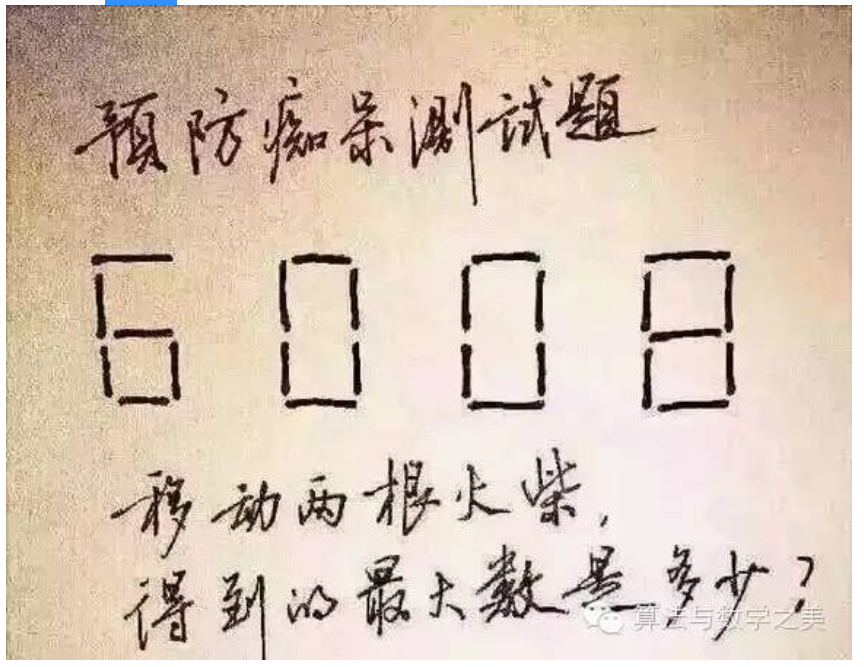 预防痴呆测试题
6008
移动两根火柴,
得到的最大数是多少?
算法与数学之美